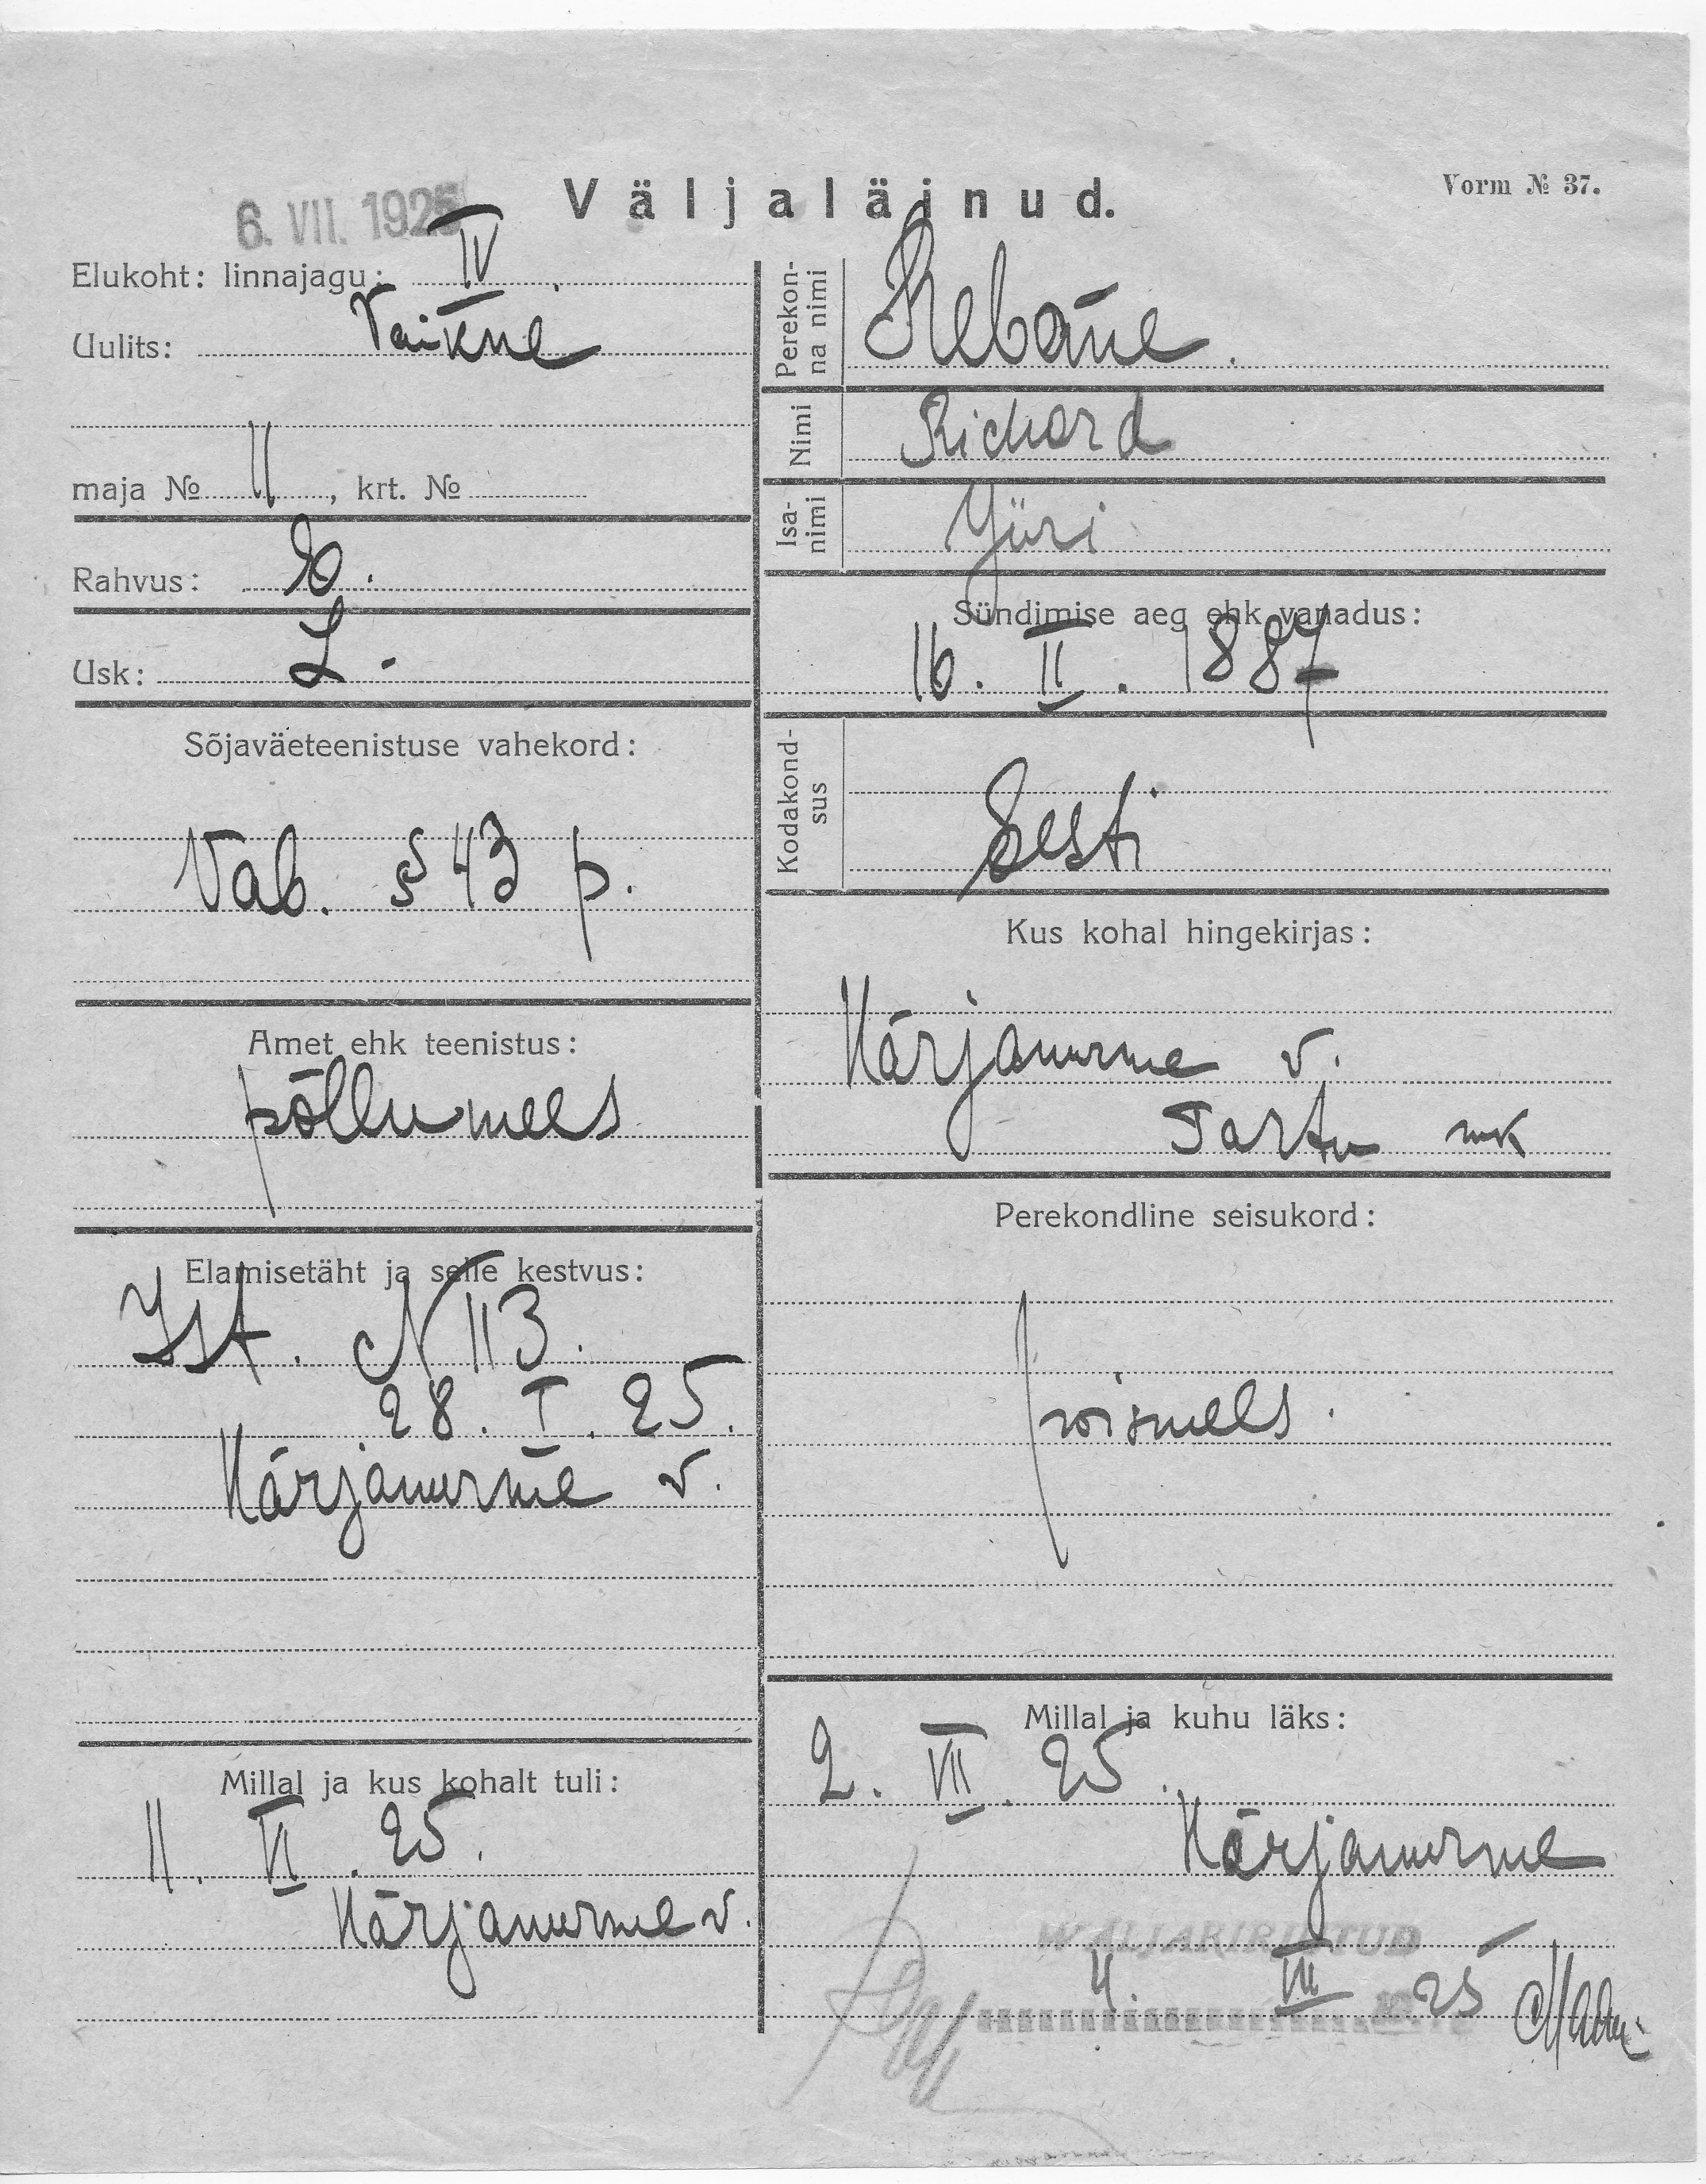 Väljaläinud.
Vorm № 37.
6. VII. 1925
Elukoht: linnajagu: IV
Uulits: Vaikne
maja № 11, krt. №
Rahvus: E.
Usk: L.
Sõjaväeteenistuse vahekord:
Vab. § 43 p.
Amet ehk teenistus:
põllumees
Elamisetäht ja selle kestvus:
Ist. N 113.
28. I. 25.
Kärjanurme v.
Millal ja kus kohalt tuli:
11. VI. 25.
Kärjanurme v.
Perekonna nimi
Rebane.
Nimi
Richard
Isanimi
Jüri
Sündimise aeg ehk vanadus:
16. II. 1887
Kodakondsus
Eesti
Kus kohal hingekirjas:
Kärjanurme v.
Tartu mk
Perekondline seisukord:
poismees.
Millal ja kuhu läks:
2. VII. 25.
Kärjanurme
4. VII 25